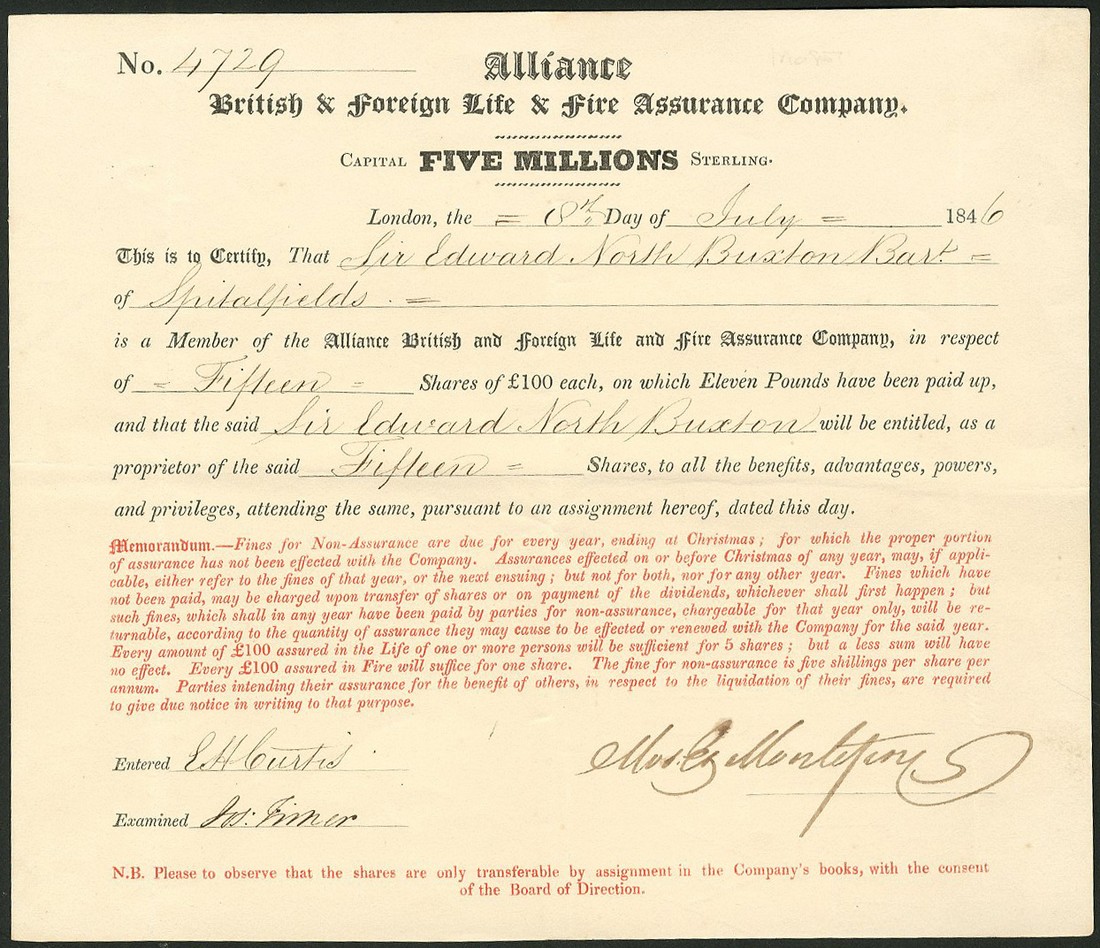 No. 4729
Alliance
British & Foreign Life & Fire Assurance Company.
Capital FIVE MILLIONS Sterling.
London, the = 8th Day of July = 1846
This is to Certify, That Sir Edward North Buxton Bart. =
of Spitalfields . =
is a Member of the Alliance British and Foreign Life and Fire Assurance Company, in respect
of = Fifteen = Shares of £100 each, on which Eleven Pounds have been paid up,
and that the said Sir Edward North Buxton will be entitled, as a
proprietor of the said Fifteen = Shares, to all the benefits, advantages, powers,
and privileges, attending the same, pursuant to an assignment hereof, dated this day.
Memorandum.—Fines for Non-Assurance are due for every year, ending at Christmas; for which the proper portion
of assurance has not been effected with the Company. Assurances effected on or before Christmas of any year, may, if appli-
cable, either refer to the fines of that year, or the next ensuing; but not for both, nor for any other year. Fines which have
not been paid, may be charged upon transfer of shares or on payment of the dividends, whichever shall first happen; but
such fines, which shall in any year have been paid by parties for non-assurance, chargeable for that year only, will be re-
turnable, according to the quantity of assurance they may cause to be effected or renewed with the Company for the said year.
Every amount of £100 assured in the Life of one or more persons will be sufficient for 5 shares; but a less sum will have
no effect. Every £100 assured in Fire will suffice for one share. The fine for non-assurance is five shillings per share per
annum. Parties intending their assurance for the benefit of others, in respect to the liquidation of their fines, are required
to give due notice in writing to that purpose.
Entered E H Curtis
Moses Montefiore
Examined Jos:
N.B. Please to observe that the shares are only transferable by assignment in the Company's books, with the consent
of the Board of Direction.